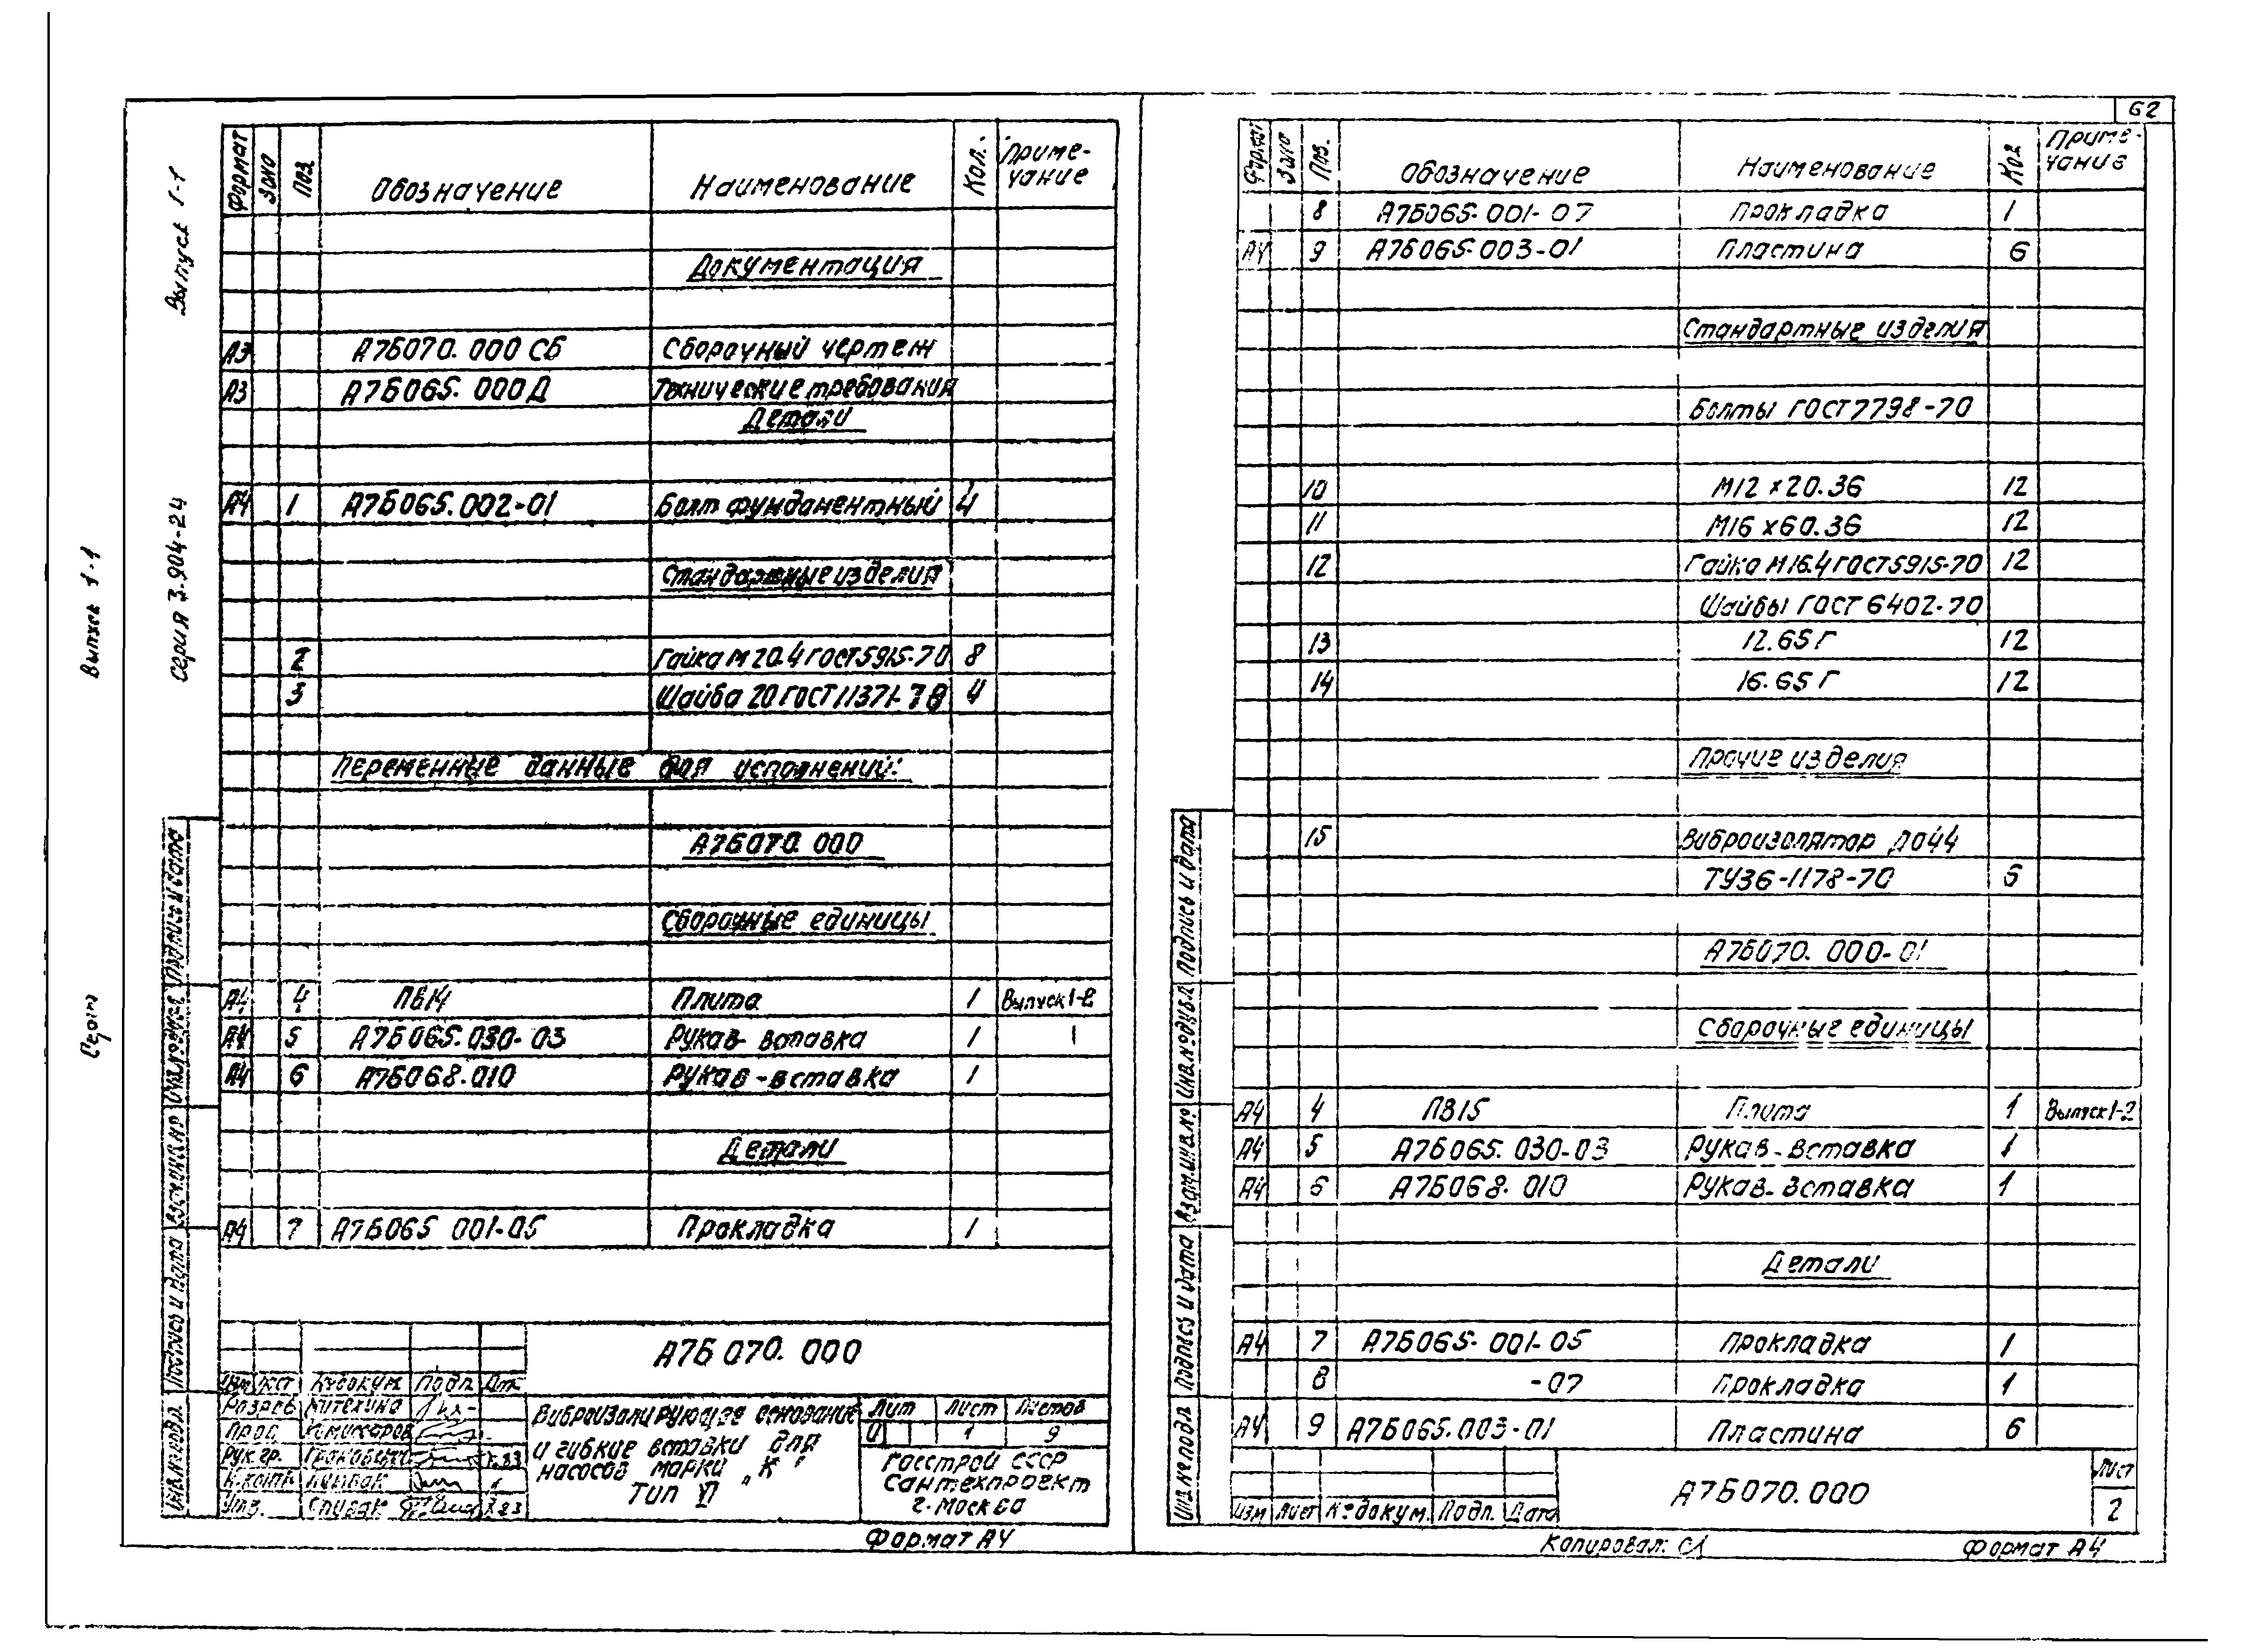 Выпуск 1-1
Серия 3.904-24
Выпуск 1-1
Формат Зона Поз. Обозначение Наименование Кол. Приме-
чание
Документация
А3 А7Б070.000 СБ Сборочный чертеж
А3 А7Б065.000Д Технические требования
Детали
А4 1 А7Б065.002-01 Болт фундаментный 4
Стандартные изделия
2 Гайка М20.4 ГОСТ 5915-70 8
3 Шайба 20 ГОСТ 11371-78 4
Переменные данные для исполнений:
А7Б070.000
Сборочные единицы
А4 4 ПВ14 Плита 1 Выпуск 1-2
А4 5 А7Б065.030-03 Рукав-вставка 1
А4 6 А7Б068.010 Рукав-вставка 1
Детали
А4 7 А7Б065 001-05 Прокладка 1
А7Б070.000
Изм Лист № докум. Подп. Дата
Разраб.
Пров.
Рук. гр.
Н.контр.
Утв. Спивак
Виброизолирующее основание
и гибкие вставки для
насосов марки „К“
Тип VI
Лит Лист Листов
И 1 9
Госстрой СССР
Сантехпроект
г. Москва
Формат А4
Подпись и дата
Инв.№ дубл.
Взам.инв.№
Подпись и дата
Инв.№ подл.
62
Формат Зона Поз. Обозначение Наименование Кол. Приме-
чание
8 А7Б065.001-07 Прокладка 1
А4 9 А7Б065.003-01 Пластина 6
Стандартные изделия
Болты ГОСТ 7798-70
10 М12×20.36 12
11 М16×60.36 12
12 Гайка М16.4 ГОСТ 5915-70 12
Шайбы ГОСТ 6402-70
13 12.65Г 12
14 16.65Г 12
Прочие изделия
15 Виброизолятор ДО44
ТУ36-1178-70 6
А7Б070.000-01
Сборочные единицы
А4 4 ПВ15 Плита 1 Выпуск 1-2
А4 5 А7Б065.030-03 Рукав-вставка 1
А4 6 А7Б068.010 Рукав-вставка 1
Детали
А4 7 А7Б065.001-05 Прокладка 1
8 -07 Прокладка 1
А4 9 А7Б065.003-01 Пластина 6
Изм Лист № докум. Подп. Дата
А7Б070.000
Лист
2
Копировал: Формат А4
Подпись и дата
Инв.№ дубл.
Взам.инв.№
Подпись и дата
Инв.№ подл.